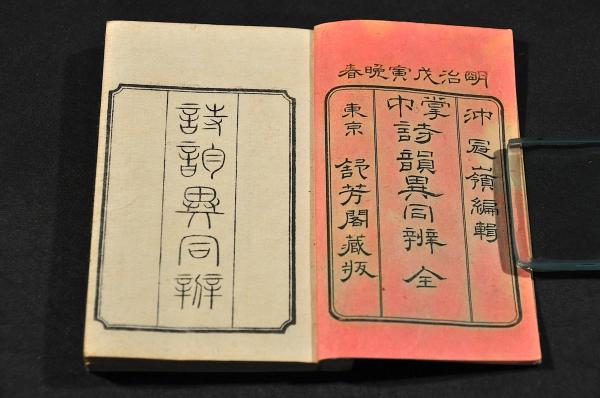 明治戊寅晩春
沖冠嶺編輯
掌中詩韻異同辨 全
東京 舒芳閣藏版
詩韵異同辨